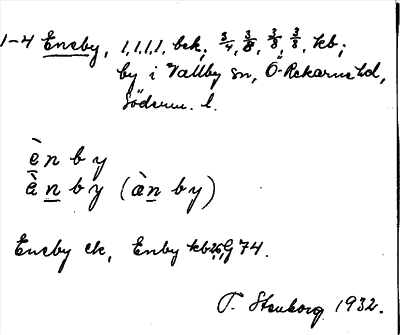 1-4 Eneby, 1,1,1,1, bek; 3/4, 3/8, 3/8, 3/8, kb;
by i Vallby sn, Ö-Rekarne hd,
Söderm. l.
ènby
ànby (ànby)
Eneby ek, Enby kb G 74.
T. Stenborg 1932.